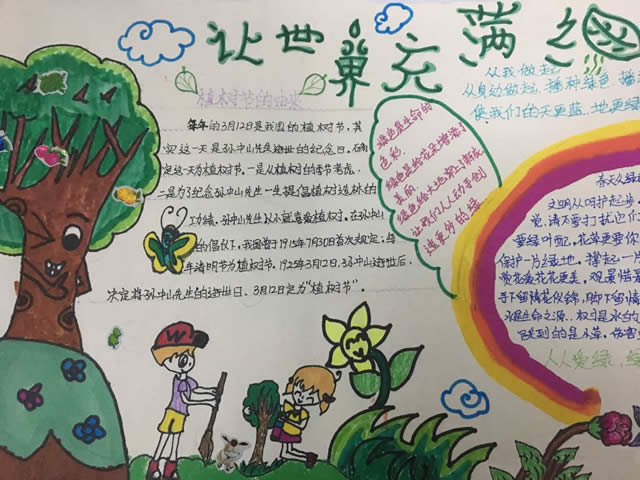 让世界充满
植树节的由来
每年的3月12日是我国的植树节，其
实这一天是孙中山先生逝世的纪念日，在确
定这一天为植树节，一是从植树的季节考虑，
二是为了纪念孙中山先生一生提倡植树造林的
功绩，孙中山先生从小就喜爱植树。在孙中山
的倡议下，我国曾于1915年7月30日首次规定：每
年清明节为植树节。1925年3月12日，孙中山逝世后，
决定将孙中山先生的逝世日，3月12日定为“植树节”。
绿色是生命的
色彩
绿色是给花朵增添了
美丽
绿色给大地穿上了新衣
让我们人人动手创
造美好的绿
从我做起，
从身边做起，播种绿色，播
使我们的天更蓝、地更绿
春天
文明从呵护起步，
觉，请不要打扰它们
要绿叶配，花草更要你
保护一片绿地，撑起一片
赏花爱花花更美，观景惜景
手下留情花似锦，脚下留情
水是生命之源，树可是水的
踩到的是小草，伤害
人人爱绿，绿
W
M